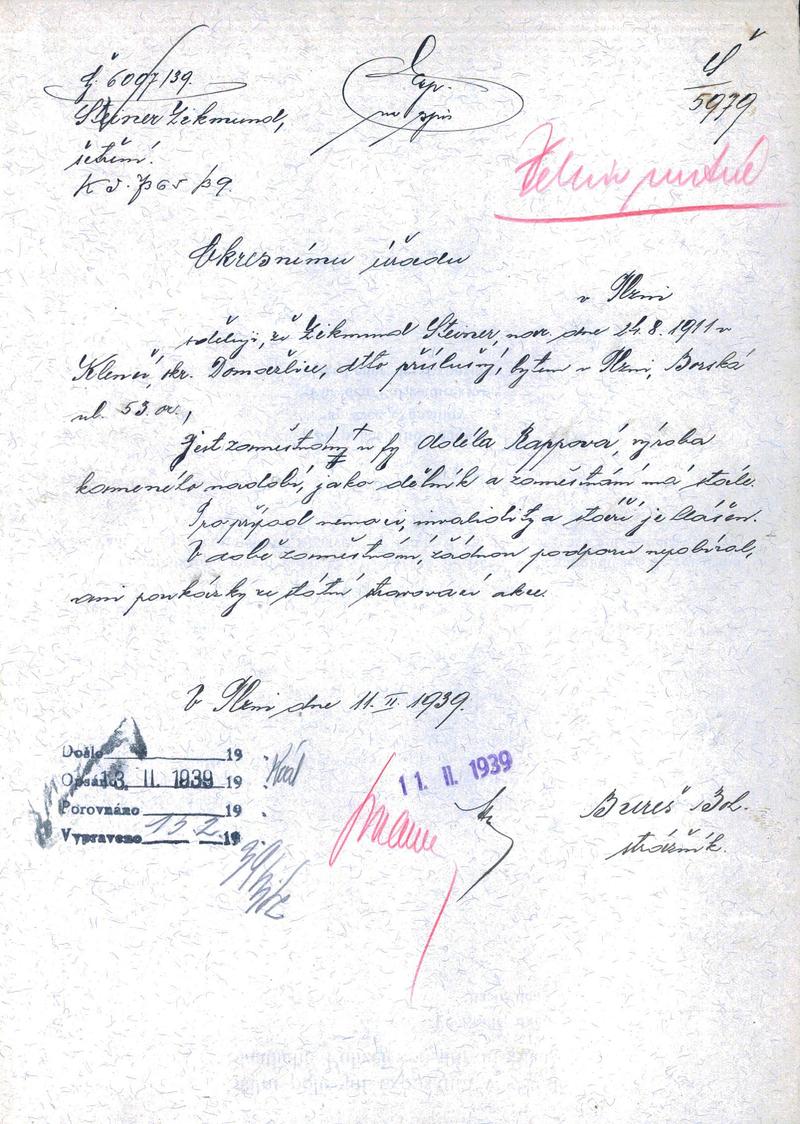 Č. 6007/39.
Steiner Zikmund,
šetření.
K J. 7365/39.
Exp.
na spis
Š
5979
Velmi nutné
Okresnímu úřadu
v Plzni
sděluji, že Zikmund Steiner, nar. dne 24.8.1911 v
Klenčí, okr. Domažlice, dtto příslušný, bytem v Plzni, Borská
ul. 53. or.,
jest zaměstnaný u fy Adéla Rappová, výroba
kameného nádobí, jako dělník a zaměstnání má stále.
Pro případ nemoci, invalidity a stáří je hlášen.
V době zaměstnání, žádnou podporu nepobíral,
ani poukázky ze státní stravovací akce.
V Plzni dne 11. II. 1939.
Došlo 19
Opsáno 13. II. 1939 19
Porovnáno 19
Vypraveno 13.2. 19
11. II. 1939
Bureš Bol.
strážník.